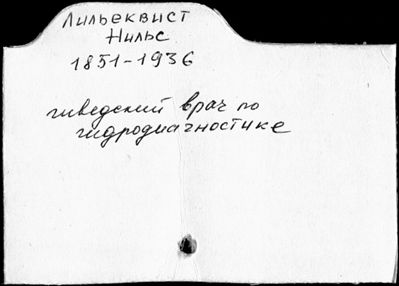 Лильеквист
Нильс
1851-1936
шведский врач по
гидродиагностике